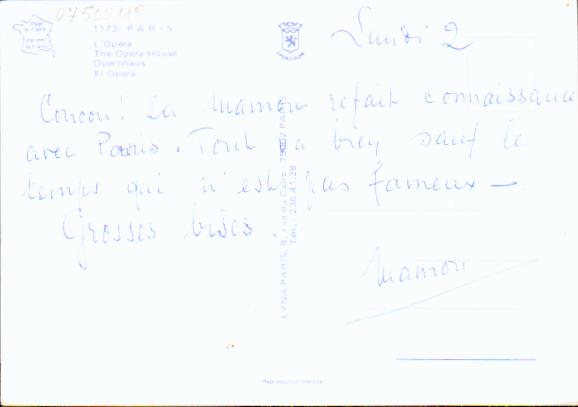 07500119
1173 PARIS
L'Opéra
The Opera House
Opernhaus
El Opera
Lundi 2
Coucou! La Maman refait connaissance
avec Paris. Tout va bien sauf le
temps qui n'est pas fameux —
Grosses bises.
Maman
LYNA-PARIS, 8, rue du Caire - 75002 PARIS
Tél.: 236.41.28